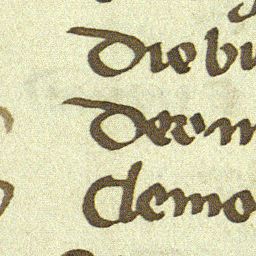 diebu
deom
clemo